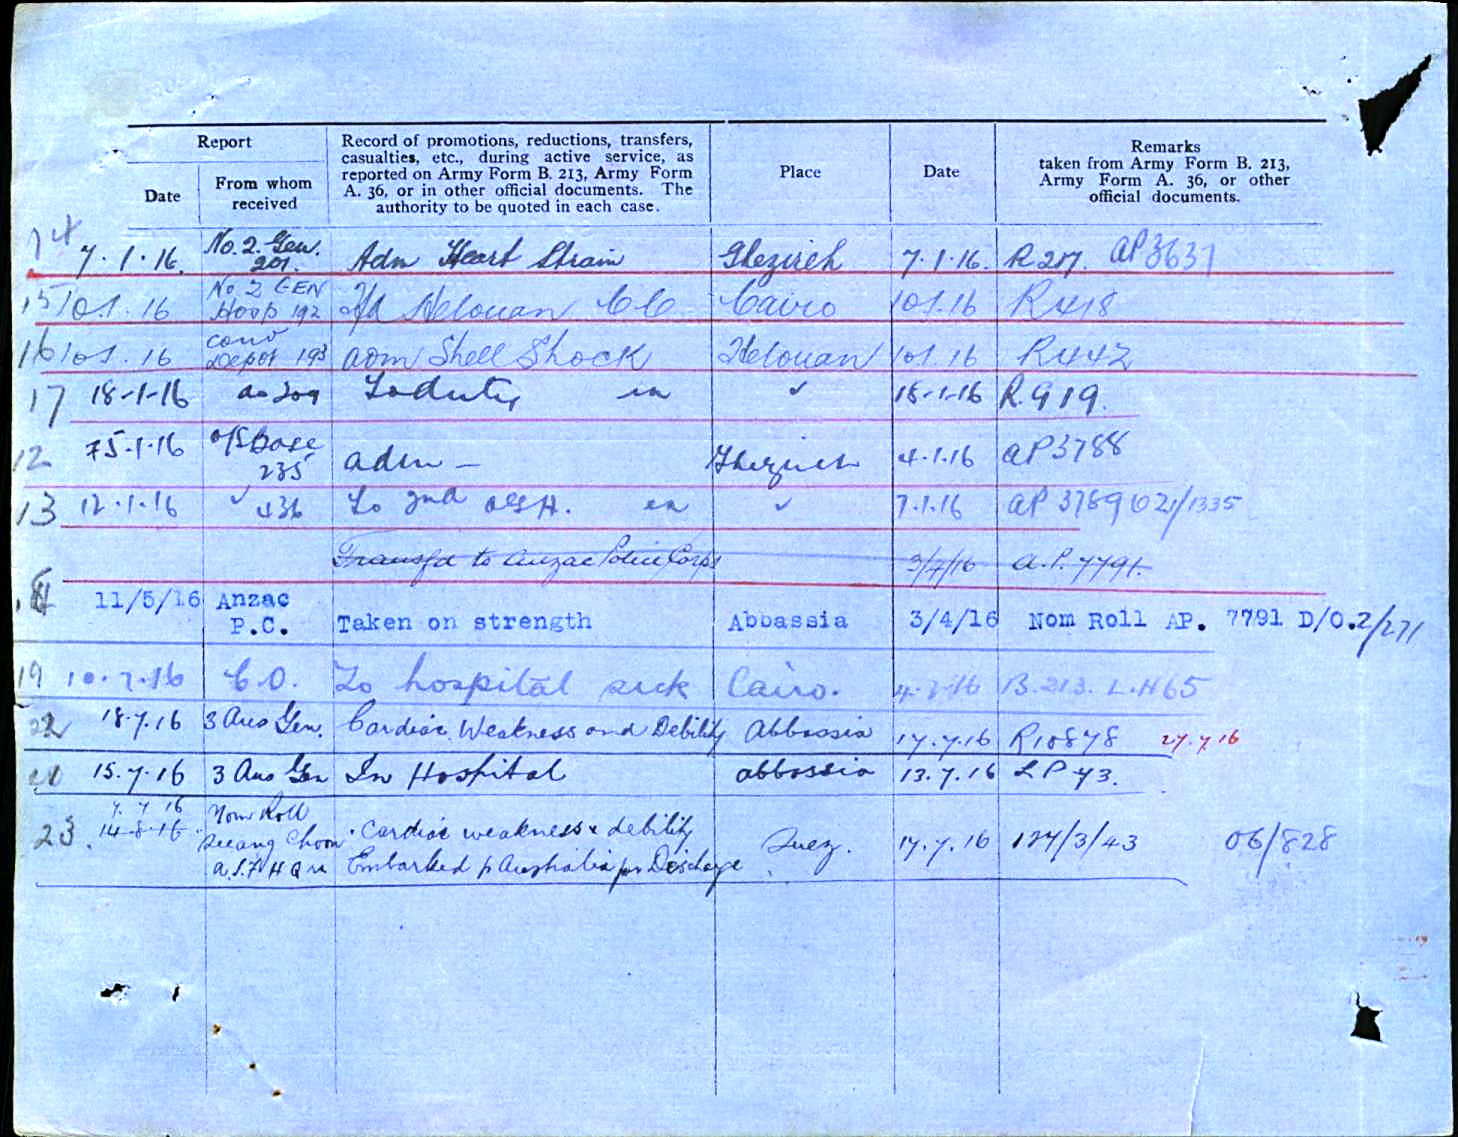 Report
Date
From whom
received
Record of promotions, reductions, transfers,
casualties, etc., during active service, as
reported on Army Form B. 213, Army Form
A. 36, or in other official documents. The
authority to be quoted in each case.
Place
Date
Remarks
taken from Army Form B. 213,
Army Form A. 36, or other
official documents.
14 7.1.16. No. 2. Gen. 201. Adm Heart Strain Ghezireh 7.1.16. R 207. AP3631
15 10.1.16 No 2 GEN Hosp 192 Tfd Helouan Cairo 10.1.16 R418
16 10.1.16 conv Depot 193 adm Shell Shock Helouan 10.1.16 R442
17 18-1-16 do 209 To duty ex ✓ 18-1-16 R919.
12 15.1.16 o/c base 235 adm — Ghezireh 4.1.16 AP3788
13 12.1.16 ✓ 436 To 2nd AGH. ex ✓ 7.1.16 AP 3789 621/1335
Transfd to Anzac Police Corps 3/4/16 A.P. 7791.
11/5/16 Anzac
P.C. Taken on strength Abbassia 3/4/16 Nom Roll AP. 7791 D/O.2/271
19 10.7.16 C.O. To hospital sick Cairo. 4.7.16 B.213. L.H65
22 18.7.16 3 Aus Gen. Cardiac Weakness and Debility Abbassia 17.7.16 R10878 27.7.16
15.7.16 3 Aus Gen In Hospital abbassia 13.7.16 LP 43.
23. 14-8-16. Nom Roll
Seeang Choon
A.I.F. H Qrs
. Cardiac weakness & debility
Embarked for Australia for Discharge Suez. 17.7.16 127/3/43 06/828